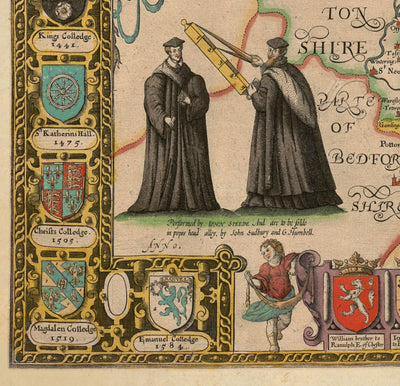 Kings Colledge
1441.
St Katherins Hall.
1475.
Christs Colledge.
1505.
Magdalen Colledge
1519.
Emanuel Colledge
1584.
TON
SHIRE
PARTE
OF
BEDFOR
SHIR
Potton
Performed by IOHN SPEEDE. And are to be solde
in popes head alley, by Iohn Sudbury and G. Humbell.
ANNO.
William brother to
Ranulph E. of Chester